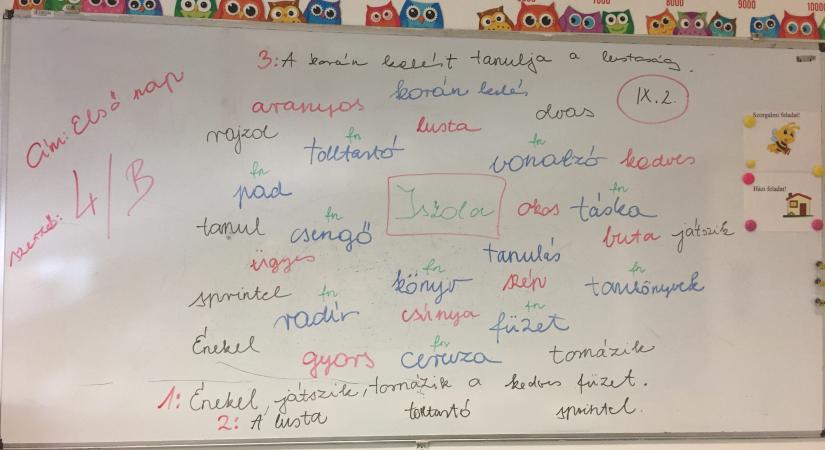 7000 8000 9000 10000
3: A korán kelést tanulja a lustaság.
Cím: Első nap
szerző: 4/B
korán kelés
IX. 2.
aranyos
rajzol
lusta
olvas
fn tolltartó
fn vonalzó
kedves
fn pad
Iskola
okos
fn táska
tanul
fn csengő
buta
játszik
ügyes
tanulás
sprintel
fn könyv
szép
fn tankönyvek
fn radír
csúnya
fn füzet
Énekel
gyors
fn ceruza
tornázik
1: Énekel, játszik, tornázik a kedves füzet.
2: A lusta tolltartó sprintel.
Szorgalmi feladat!
Házi feladat!